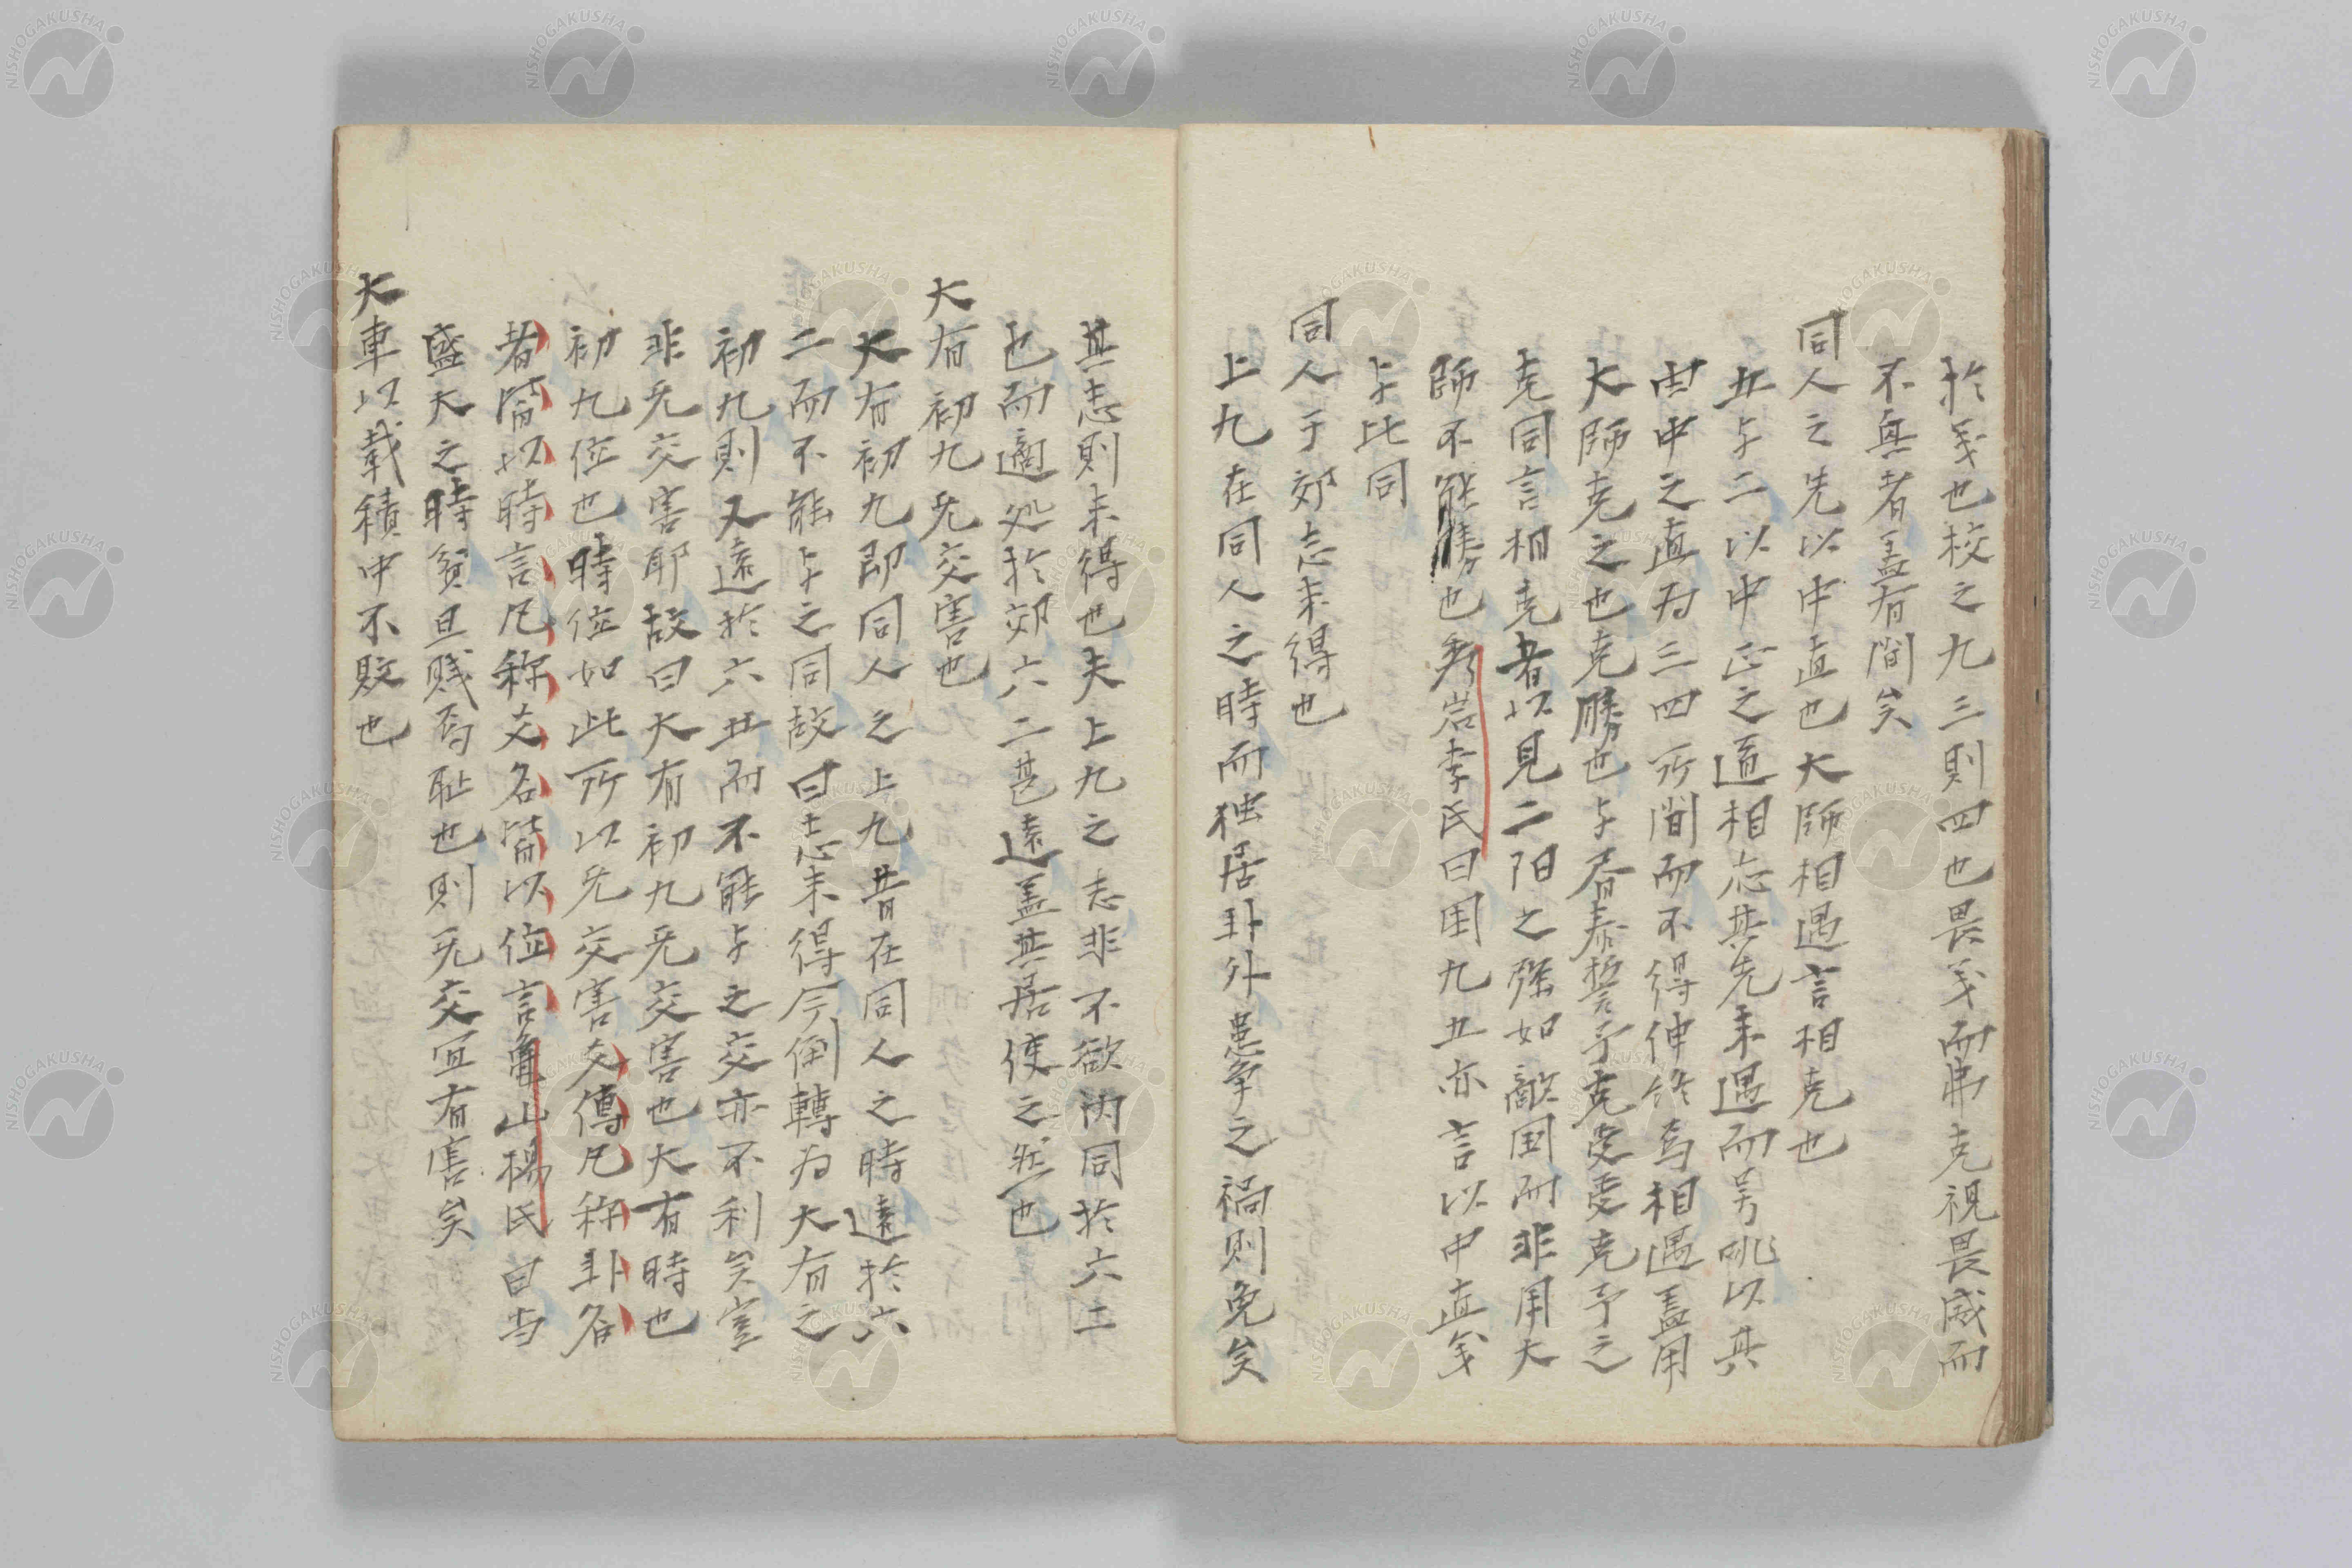 於義也校之九三則四也畏義而弗克視畏威而
不興者盖有間矣
同人之先以中直也大師相遇言相克也
五与二以中正之道相应其先未遇而号咷以其
由中之直为三四所間而不得伸終焉相遇盖用
大師克之也克勝也与春泰誓予克受受克予之
克同言相克者以見二阳之强如敵国而非用大
師不能勝也秀岩李氏曰困九五亦言以中直義
与比同
同人于郊志未得也
上九在同人之時而独居卦外患争之禍則免矣
其志則未得也夫上九之志非不欲内同於六二
也而適処於郊六二甚遠盖其居使之然也
大有初九无交害也
大有初九即同人之上九昔在同人之時遠於六
二而不能与之同故曰志未得今倒轉为大有之
初九則又遠於六五而不能与之交亦不利矣害
非无交害耶故曰大有初九无交害也大有時也
初九位也時位如此所以无交害交傳凡称卦名
者皆以時言凡称爻名皆以位言龜山楊氏曰当
盛大之時貧且賎焉耻也則无交宜有害矣
大車以載積中不敗也
NISHOGAKUSHA